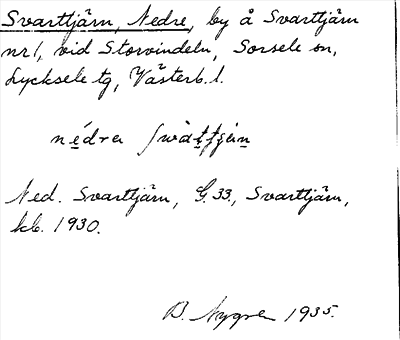 Svarttjärn, Nedre, by å Svarttjärn
nr 1, vid Storvindeln, Sorsele sn,
Lycksele tg, Västerb. l.
Ned. Svarttjärn, G. 33., Svarttjärn,
kb. 1930.
B. Nygren 1935.